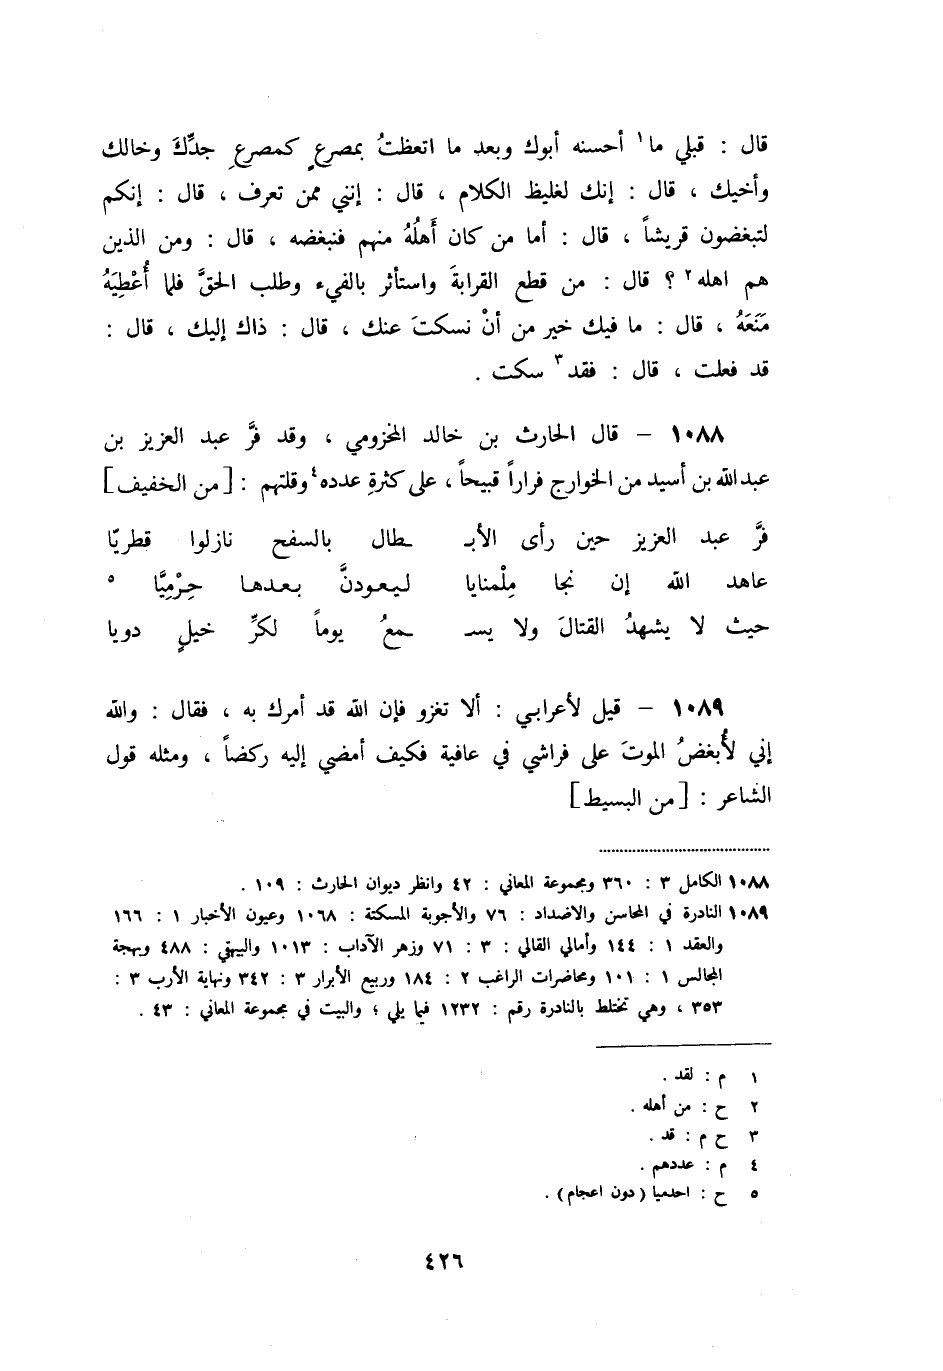 قال : قبلي ما١ أحسنه أبوك وبعد ما اتعظتُ بمصرعٍ كمصرعِ جدِّكَ وخالك
وأخيك ، قال : إنك لغليظ الكلام ، قال : إنني ممن تعرف ، قال : إنكم
لتبغضون قريشاً ، قال : أما من كان أَهلُهُ منهم فنبغضه ، قال : ومن الذين
هم اهله٢ ؟ قال : من قطع القرابةَ واستأثر بالفيء وطلب الحقَّ فلما أُعْطِيَهُ
مَنَعَهُ ، قال : ما فيك خير من أنْ نسكتَ عنك ، قال : ذاك إليك ، قال :
قد فعلت ، قال : فقد٣ سكت .
١٠٨٨ – قال الحارث بن خالد المخزومي ، وقد فرَّ عبد العزيز بن
عبدالله بن أسيد من الخوارج فراراً قبيحاً ، على كثرةِ عدده٤ وقلتهم : [من الخفيف]
فرَّ عبد العزيز حين رأى الأبـ ـطال بالسفح نازلوا قطريّا
عاهد الله إن نجا مِلْمنايا ليعودنَّ بعدها حِرْمِيَّا ٥
حيث لا يشهدُ القتالَ ولا يسـ ـمعُ يوماً لكرِّ خيلٍ دويا
١٠٨٩ – قيل لأعرابي : ألا تغزو فإن الله قد أمرك به ، فقال : والله
إني لأُبغضُ الموتَ على فراشي في عافية فكيف أمضي إليه ركضاً ، ومثله قول
الشاعر : [من البسيط]
١٠٨٨ الكامل ٣ : ٣٦٠ ومجموعة المعاني : ٤٢ وانظر ديوان الحارث : ١٠٩ .
١٠٨٩ النادرة في المحاسن والاضداد : ٧٦ والأجوبة المسكتة : ١٠٦٨ وعيون الأخبار ١ : ١٦٦
والعقد ١ : ١٤٤ وأمالي القالي : ٣ : ٧١ وزهر الآداب : ١٠١٣ والبيهقي : ٤٨٨ وبهجة
المجالس ١ : ١٠١ ومحاضرات الراغب ٢ : ١٨٤ وربيع الأبرار ٣ : ٣٤٢ ونهاية الأرب ٣ :
٣٥٣ ، وهي تختلط بالنادرة رقم : ١٢٣٢ فيما يلي ؛ والبيت في مجموعة المعاني : ٤٣ .
١ م : لقد .
٢ ح : من أهله .
٣ ح م : قد .
٤ م : عددهم .
٥ ح : احدميا (دون اعجام) .
٤٢٦